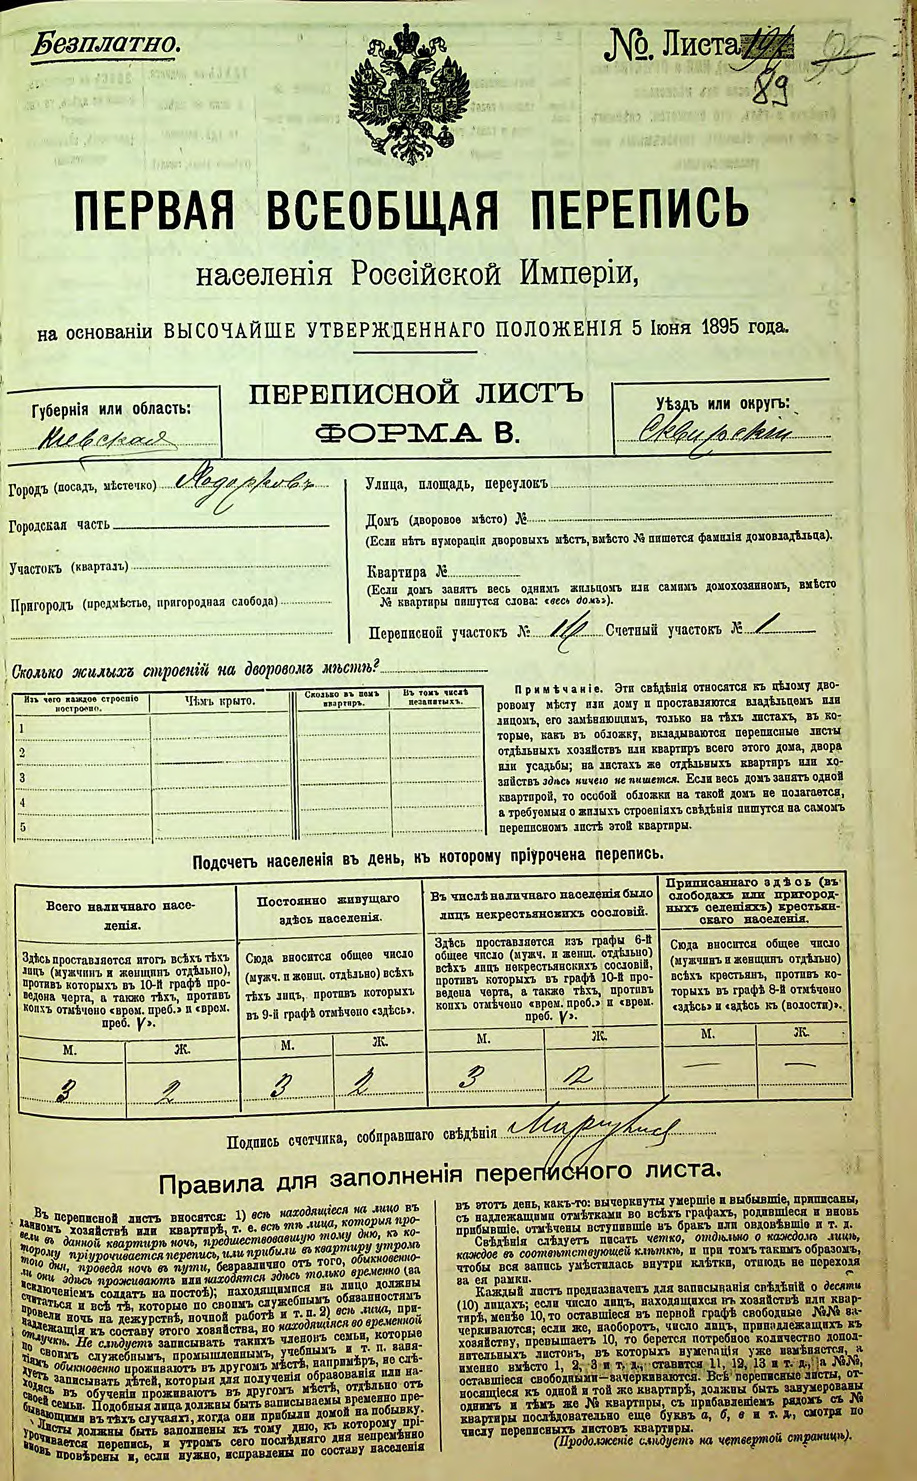 Безплатно.
№ Листа
89
ПЕРВАЯ ВСЕОБЩАЯ ПЕРЕПИСЬ
населенія Россійской Имперіи,
на основаніи ВЫСОЧАЙШЕ УТВЕРЖДЕННАГО ПОЛОЖЕНІЯ 5 Іюня 1895 года.
Губернія или область:
Кіевская
ПЕРЕПИСНОЙ ЛИСТЪ
ФОРМА В.
Уѣздъ или округъ:
Сквирскій
Городъ (посадъ, мѣстечко) Ходорковъ
Городская часть
Участокъ (кварталъ)
Пригородъ (предмѣстье, пригородная слобода)
Улица, площадь, переулокъ
Домъ (дворовое мѣсто) №
(Если нѣтъ нумераціи дворовыхъ мѣстъ, вмѣсто № пишется фамилія домовладѣльца).
Квартира №
(Если домъ занятъ весь однимъ жильцомъ или самимъ домохозяиномъ, вмѣсто
№ квартиры пишутся слова: «весь домъ»).
Переписной участокъ № Счетный участокъ № 1
Сколько жилыхъ строеній на дворовомъ мѣстѣ?
Изъ чего каждое строеніе построено.
Чѣмъ крыто.
Сколько въ немъ квартиръ.
Въ томъ числѣ незанятыхъ.
1
2
3
4
5
Примѣчаніе. Эти свѣдѣнія относятся къ цѣлому дво-
ровому мѣсту или дому и проставляются владѣльцемъ или
лицомъ, его замѣняющимъ, только на тѣхъ листахъ, въ ко-
торые, какъ въ обложку, вкладываются переписные листы
отдѣльныхъ хозяйствъ или квартиръ всего этого дома, двора
или усадьбы; на листахъ же отдѣльныхъ квартиръ или хо-
зяйствъ здѣсь ничего не пишется. Если весь домъ занятъ одной
квартирой, то особой обложки на такой домъ не полагается,
а требуемыя о жилыхъ строеніяхъ свѣдѣнія пишутся на самомъ
переписномъ листѣ этой квартиры.
Подсчетъ населенія въ день, къ которому пріурочена перепись.
Всего наличнаго насе-
ленія.
Здѣсь проставляется итогъ всѣхъ тѣхъ
лицъ (мужчинъ и женщинъ отдѣльно),
противъ которыхъ въ 10-й графѣ про-
ведена черта, а также тѣхъ, противъ
коихъ отмѣчено «врем. преб.» и «врем.
преб. V».
Постоянно живущаго
здѣсь населенія.
Сюда вносится общее число
(мужч. и женщ. отдѣльно) всѣхъ
тѣхъ лицъ, противъ которыхъ
въ 9-й графѣ отмѣчено «здѣсь».
Въ числѣ наличнаго населенія было
лицъ некрестьянскихъ сословій.
Здѣсь проставляется изъ графы 6-й
общее число (мужч. и женщ. отдѣльно)
всѣхъ лицъ некрестьянскихъ сословій,
противъ которыхъ въ графѣ 10-й про-
ведена черта, а также тѣхъ, противъ
коихъ отмѣчено «врем. преб.» и «врем.
преб. V».
Приписаннаго здѣсь (въ
слободахъ или пригород-
ныхъ селеніяхъ) крестьян-
скаго населенія.
Сюда вносится общее число
(мужчинъ и женщинъ отдѣльно)
всѣхъ крестьянъ, противъ ко-
торыхъ въ графѣ 8-й отмѣчено
«здѣсь» и «здѣсь къ (волости)».
М. Ж. М. Ж. М. Ж. М. Ж.
3 2 3 2 3 2 — —
Подпись счетчика, собиравшаго свѣдѣнія
Правила для заполненія переписного листа.
Въ переписной листъ вносятся: 1) всѣ находящіеся на лицо въ
данномъ хозяйствѣ или квартирѣ, т. е. всѣ тѣ лица, которыя про-
вели въ данной квартирѣ ночь, предшествовавшую тому дню, къ ко-
торому пріурочивается перепись, или прибыли въ квартиру утромъ
того дня, проведя ночь въ пути, безразлично отъ того, обыкновенно-
ли они здѣсь проживаютъ или находятся здѣсь только временно (за
исключеніемъ солдатъ на постоѣ); находящимися на лицо должны
считаться и всѣ тѣ, которые по своимъ служебнымъ обязанностямъ
провели ночь на дежурствѣ, ночной работѣ и т. п. 2) всѣ лица, при-
надлежащія къ составу этого хозяйства, но находящіяся во временной
отлучкѣ. Не слѣдуетъ записывать такихъ членовъ семьи, которые
по своимъ служебнымъ, промышленнымъ, учебнымъ и т. п. заня-
тіямъ обыкновенно проживаютъ въ другомъ мѣстѣ, напримѣръ, не слѣ-
дуетъ записывать дѣтей, которыя для полученія образованія или на-
ходясь въ обученіи проживаютъ въ другомъ мѣстѣ, отдѣльно отъ
своей семьи. Подобныя лица должны быть записываемы временно пре-
бывающими въ тѣхъ случаяхъ, когда они прибыли домой на побывку.
Листы должны быть заполнены къ тому дню, къ которому прі-
урочивается перепись, и утромъ сего послѣдняго дня непремѣнно
вновь провѣрены и, если нужно, исправлены по составу населенія
въ этотъ день, какъ-то: вычеркнуты умершіе и выбывшіе, приписаны,
съ надлежащими отмѣтками во всѣхъ графахъ, родившіеся и вновь
прибывшіе, отмѣчены вступившіе въ бракъ или овдовѣвшіе и т. д.
Свѣдѣнія слѣдуетъ писать четко, отдѣльно о каждомъ лицѣ,
каждое въ соотвѣтствующей клѣткѣ, и при томъ такимъ образомъ,
чтобы вся запись умѣстилась внутри клѣтки, отнюдь не переходя
за ея рамки.
Каждый листъ предназначенъ для записыванія свѣдѣній о десяти
(10) лицахъ; если число лицъ, находящихся въ хозяйствѣ или квар-
тирѣ, менѣе 10, то оставшіеся въ первой графѣ свободные №№ за-
черкиваются; если же, наоборотъ, число лицъ, принадлежащихъ къ
хозяйству, превышаетъ 10, то берется потребное количество допол-
нительныхъ листовъ, въ которыхъ нумерація уже измѣняется, а
именно вмѣсто 1, 2, 3 и т. д., ставится 11, 12, 13 и т. д., а №№,
оставшіеся свободными—зачеркиваются. Всѣ переписные листы, от-
носящіеся къ одной и той же квартирѣ, должны быть занумерованы
однимъ и тѣмъ же № квартиры, съ прибавленіемъ рядомъ съ №
квартиры послѣдовательно еще буквъ а, б, в и т. д., смотря по
числу переписныхъ листовъ квартиры.
(Продолженіе слѣдуетъ на четвертой страницѣ).